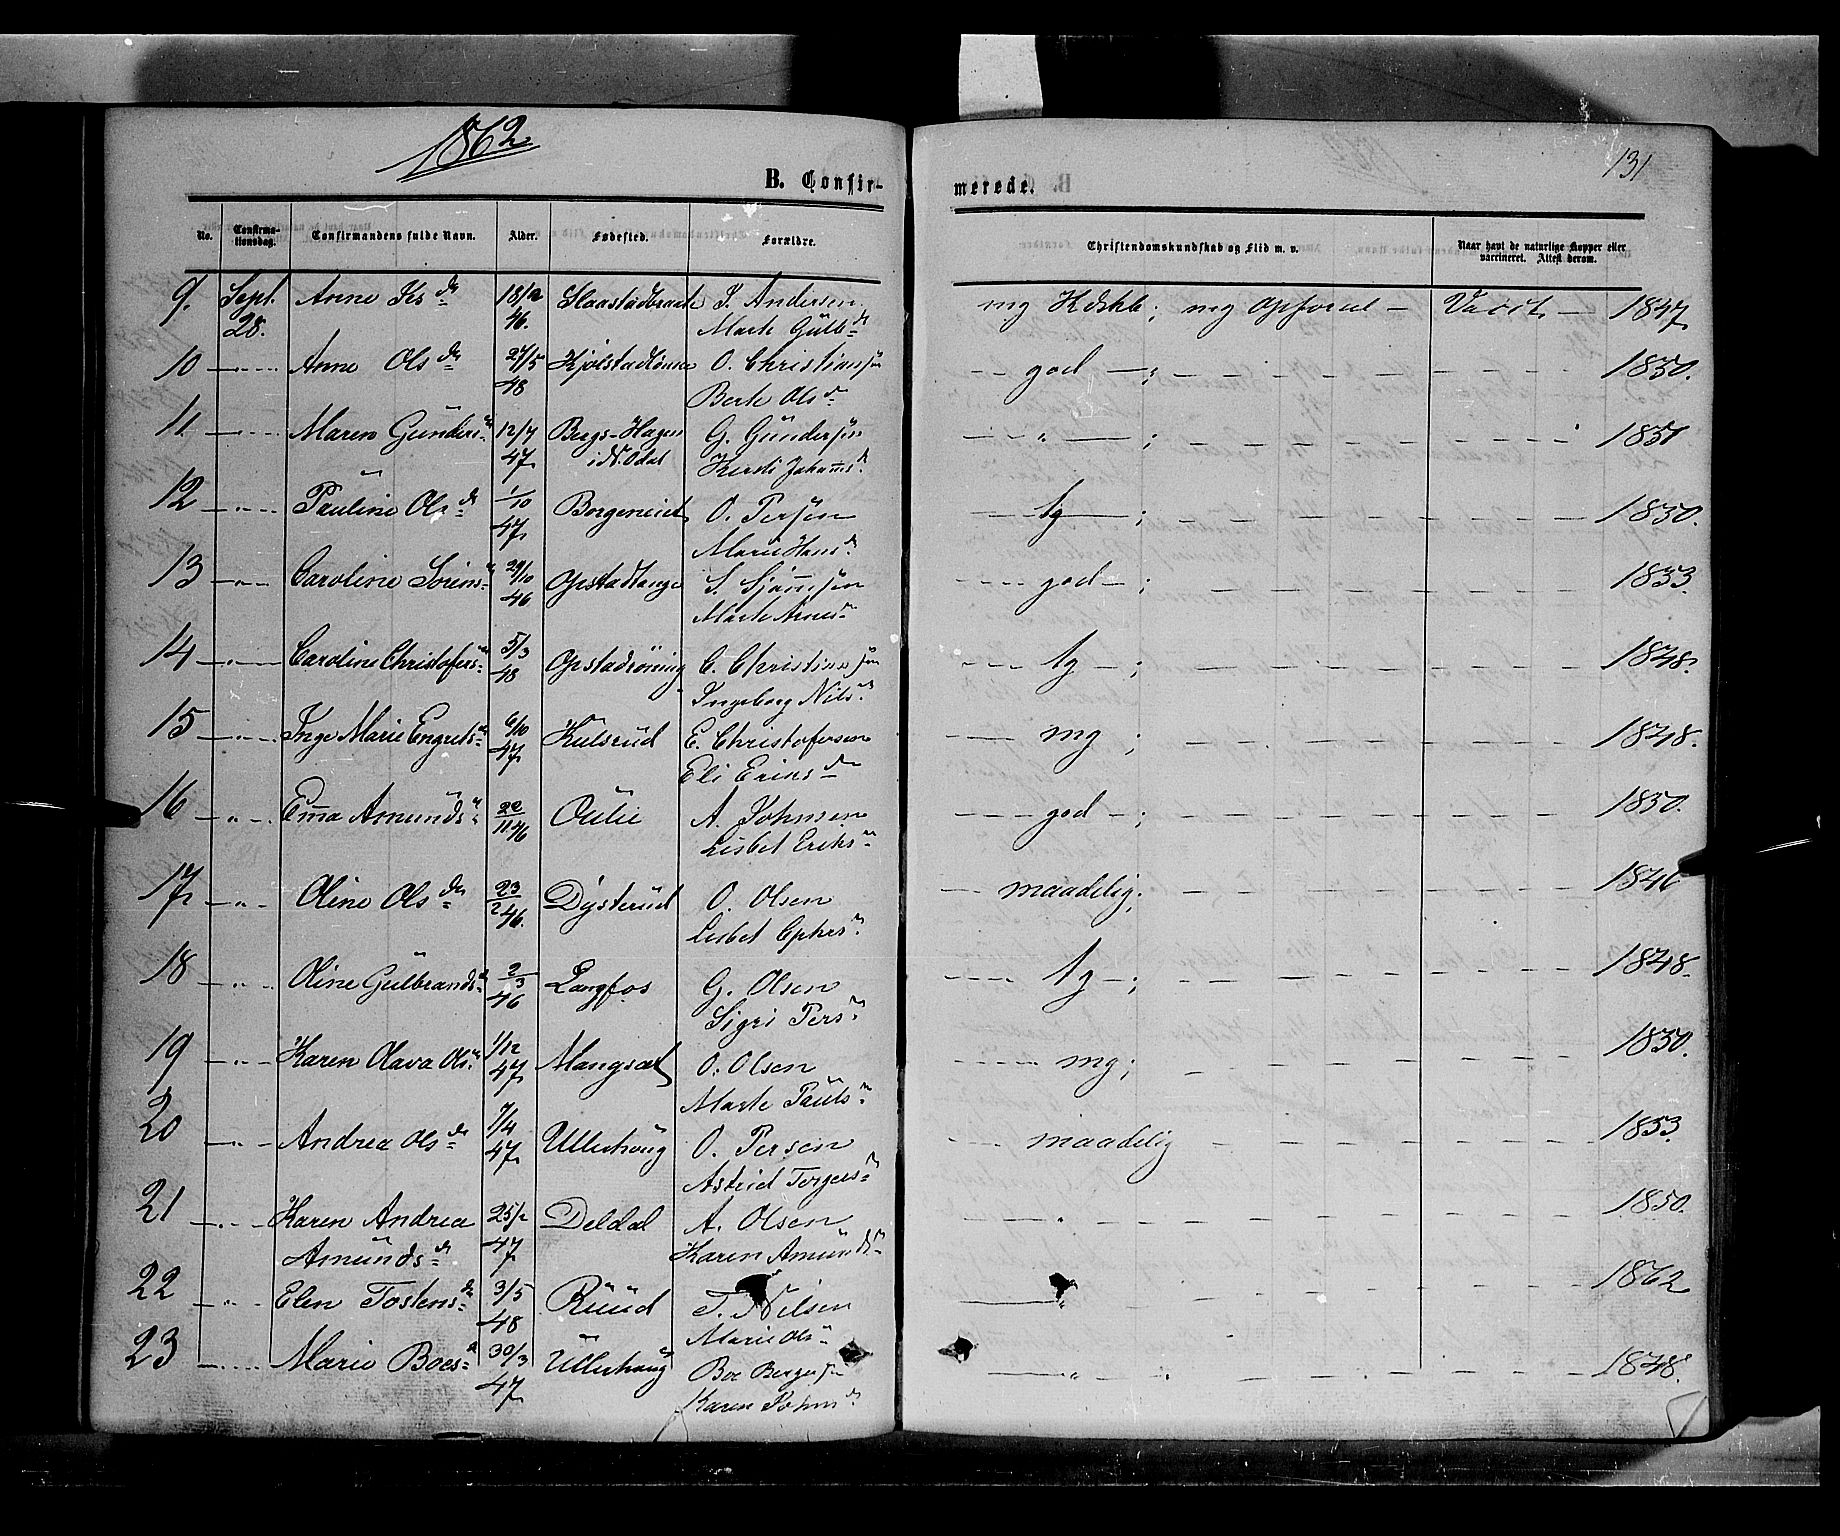 1862
131
B. Confir-
merede.
No.
Confirma-
tionsdag.
Confirmandens fulde Navn.
Alder.
Fødested.
Forældre.
Christendomskundskab og Flid m. v.
Naar havt de naturlige Kopper eller
vaccineret. Attest derom.
9. Sept. Anne 18/12 I. Andersen mg Kdskb; mg Opførsel — Vacct. — 1847.
28. 46. Marte Gulb.d.
10 — „ — Anne Ols.d. 27/5 Kjølstadtønne O. Christiansøn — god —; 1850.
48 Berte Ols.d.
11 — „ — Maren Gunders.d. 12/7 Bergs-Hagen G. Gundersøn — „ —; 1851
47. i N. Odal Kersti Johans.d.
12 — „ — Pauline Ols.d. 1/10 Borgeneiet O. Persøn — tg —; 1850.
47. Marie Hans.d.
13 — „ — Caroline Sørens.d. 29/10 Opstadtange S. — god —; 1853.
46 Marte Arnes.d.
14 — „ — Caroline Christofers.d. 5/3 Opstadrøning C. — tg —; 1848.
48 Ingeborg Nils.d.
15 — „ — Inge Marie Engrets.d. 6/10 Kulsrud E. Christofersen — mg; 1848.
47. Eli Eriks.d.
16 — „ — Ema Amunds.d. 22/11 46 Oulie A. Johnsen — god —; 1850.
Lisbet Eriks.d.
17. — „ — Oline Ols.d. 23/2 46. Dysterud O. Olsen — maadelig; 1846
Lisbet
18 — „ — Oline Gulbrands.d. 2/3 Langfos G. Olsen — tg —; 1848.
46 Sigri Pers.d.
19 — „ — Karen Olava Ols.d. 1/12 O. Olsen — mg; 1850.
47. Marte Pauls.d.
20 — „ — Andrea Ols.d. 7/4 Ullerhaug O. Persen — maadelig 1853.
47. Astrid Torgers.d.
21 — „ — Karen Andrea 25/2 Deldal A. Olsen — „ 1850.
Amunds.d. 47 Karen Amunds.d.
22 — „ — Elen Tostens.d. 3/5 Ruud T. Nilsen — „ 1862
48 Marie Ols.d.
23 — „ — Marie Boes.d. 30/3 Ullerhaug Boe Bergersøn — „ 1848.
47. Karen Johns.d.